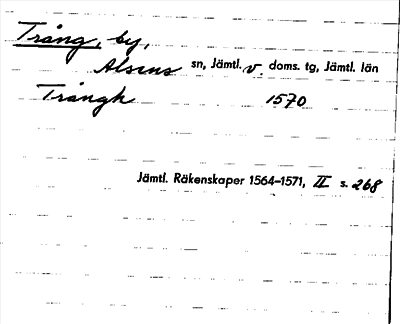 Trång, by,
Alsens sn, Jämtl. v. doms. tg, Jämtl. län
Trångh 1570
Jämtl. Räkenskaper 1564–1571, II s. 268